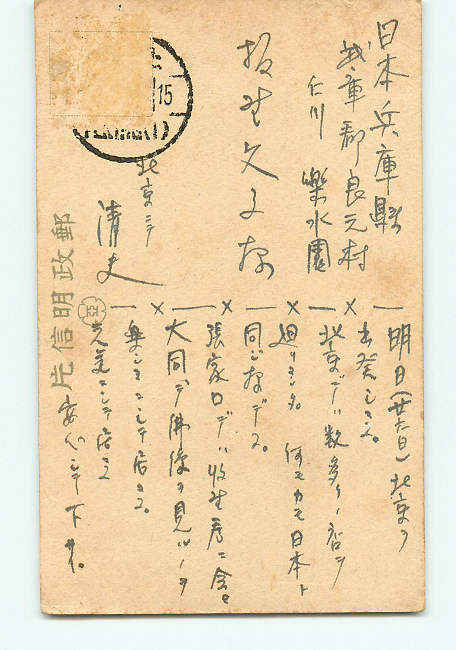 日本兵庫縣
武庫郡良元村
仁川 樂水園
文子様
北京ニテ
清夫
郵政明信片
15
明日(廿六日)北京ヲ
出発シマス。
北京デハ数多クノ店ヲ
廻リマシタ。何モカモ日本ト
同ジ様デス。
張家口デハ 君ニ会ヒ
大同デ佛像ヲ見ルノヲ
楽シミニシテ居マス。
元気ニシテ居マス
安心シテ下サイ。